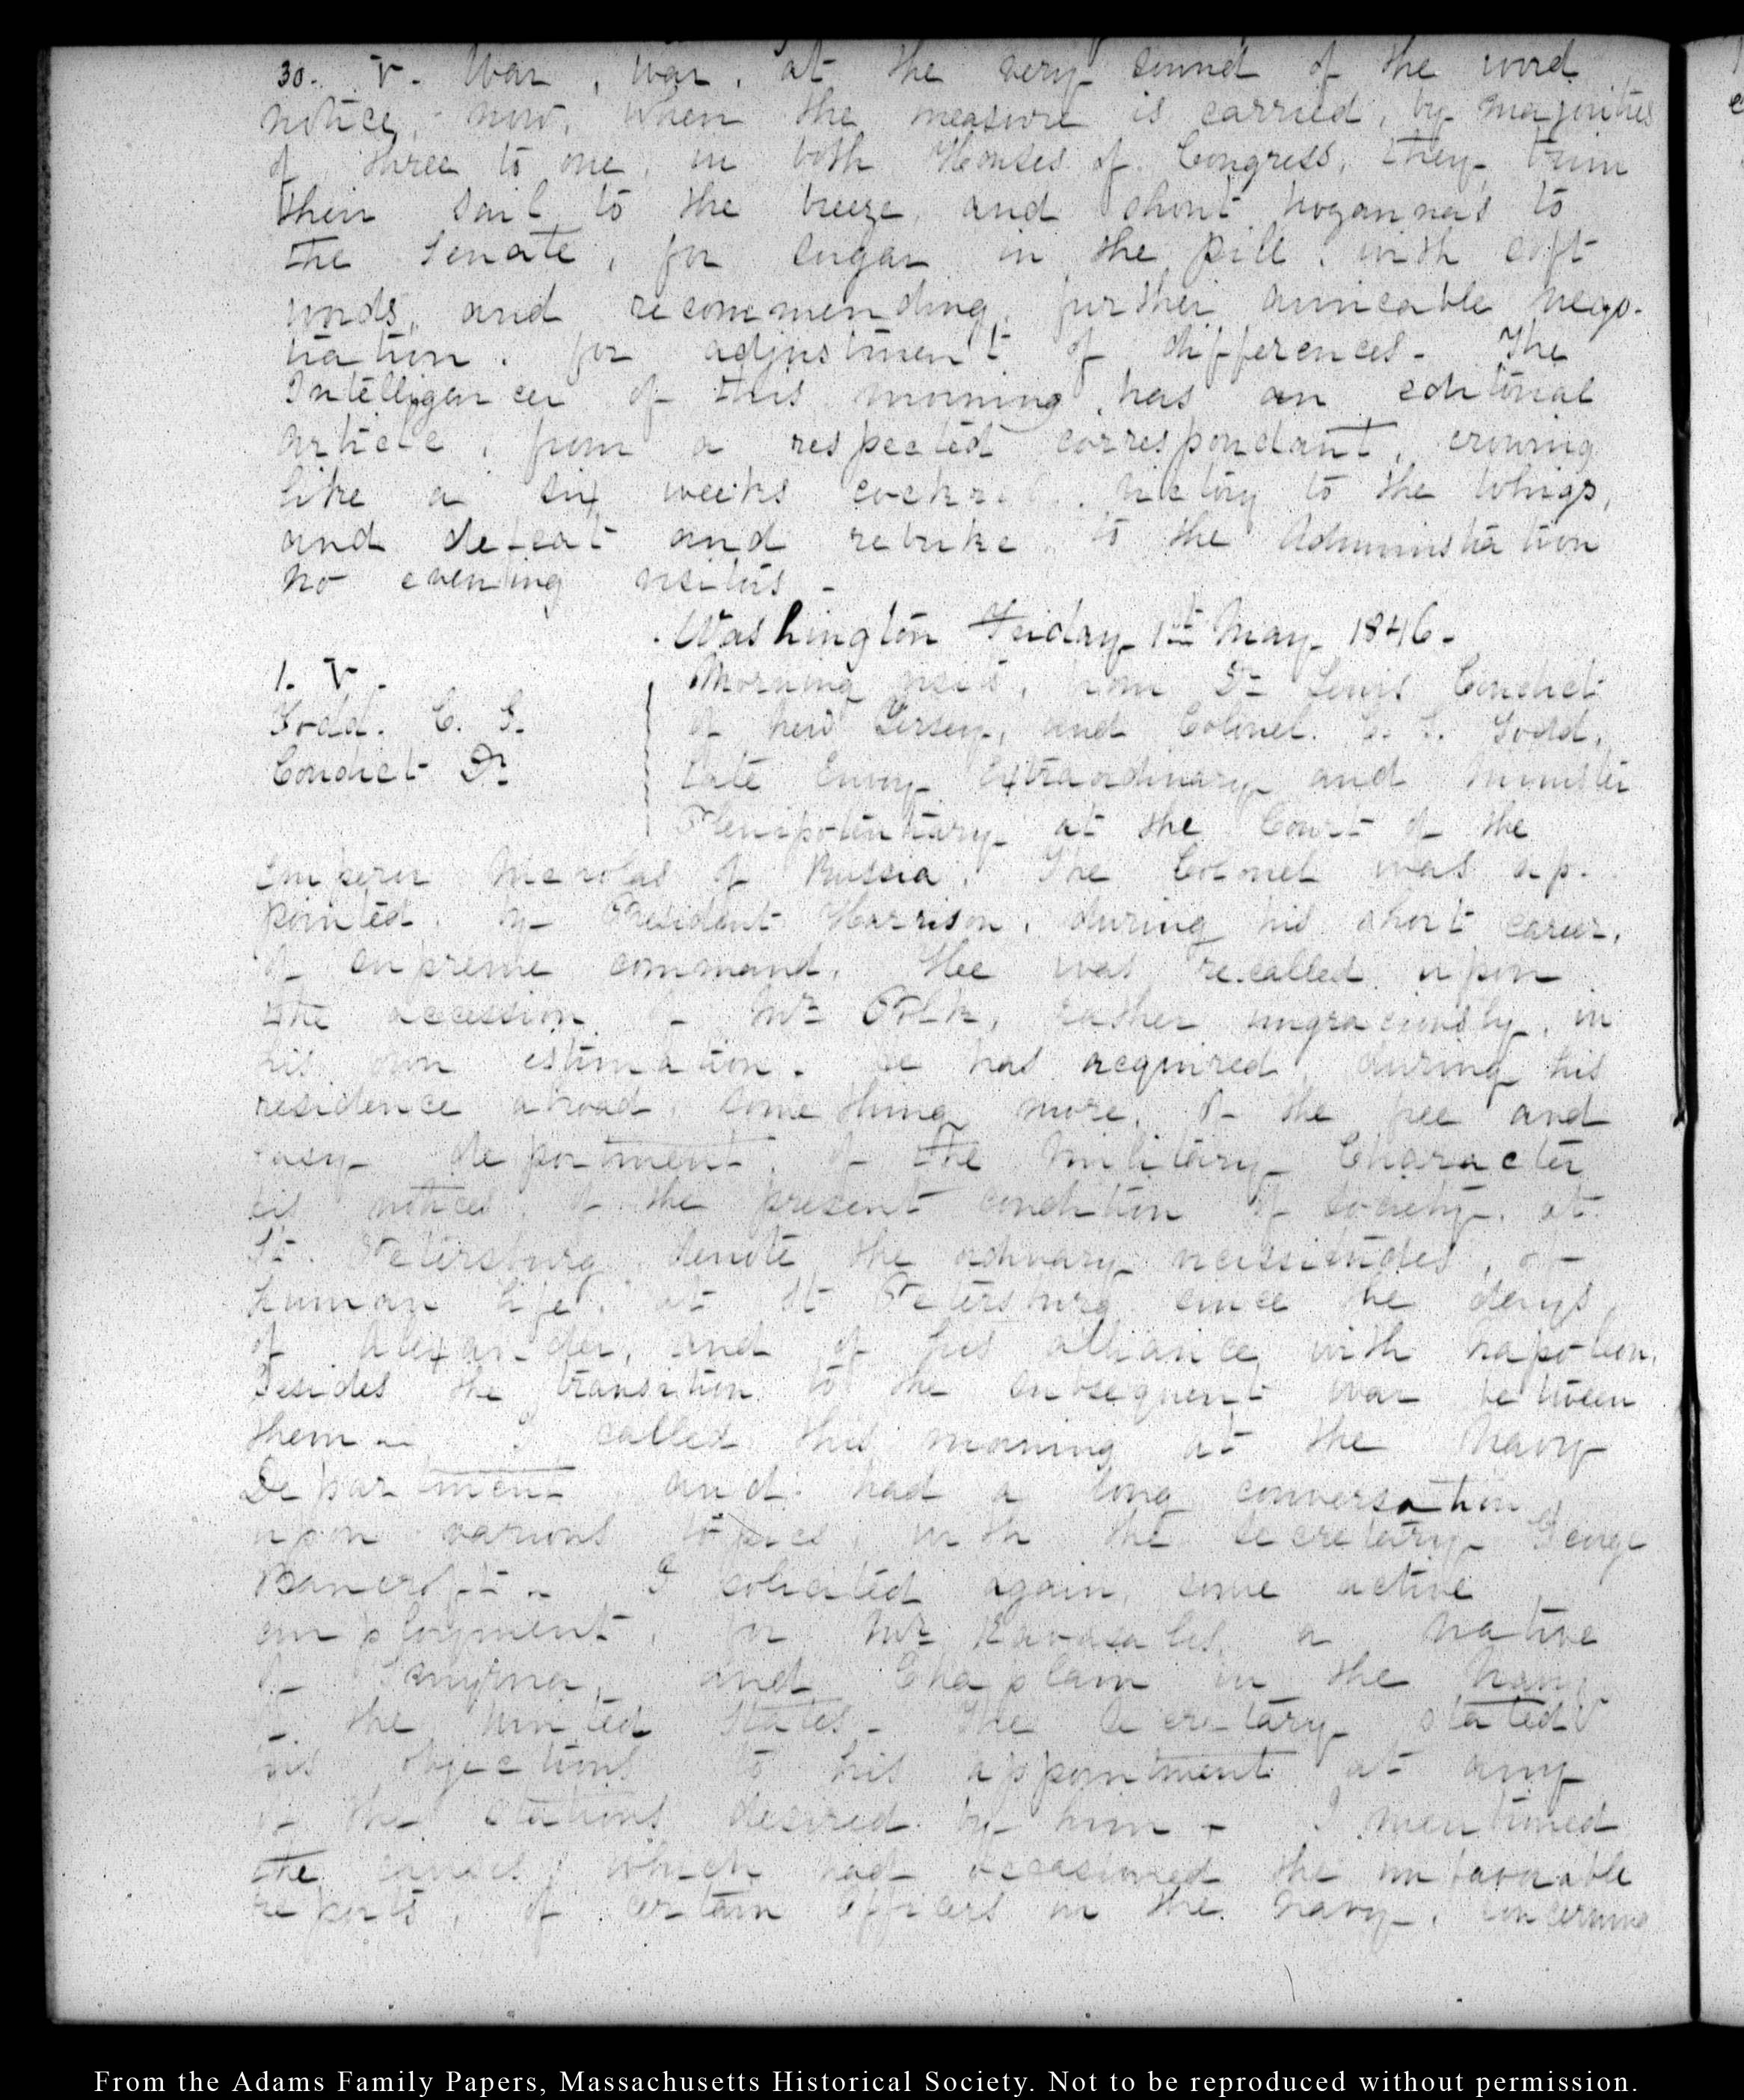 30. V. War, war, at the very sound of the word
notice, now, when the measure is carried, by majorities
of three to one, in both Houses of Congress, they trim
their sail to the breeze, and shout hozannas to
the Senate, for sugar in the pill, with soft
words, and recommending further amicable nego-
tiation, for adjustment of differences. The
Intelligencer of this morning, has an editorial
article, from a respected correspondant, crowing
like a six weeks cockrel, victory to the Whigs,
and defeat and rebuke, to the Administration
No evening visitors-
Washington Friday 1st May 1846.
1. V.
Todd. C. S.
Condict Dr
Morning visits, from Dr Lewis Condict
of New Jersey, and Colonel C. S. Todd,
late Envoy Extraordinary and Minister
Plenipotentiary at the Court of the
Emperor Nicholas of Russia. The Colonel was ap-
pointed by President Harrison, during his short career,
of supreme command. Hee was recalled upon
the accession of Mr Polk, rather ungraciously, in
his own estimation. He has acquired, during his
residence abroad, something more, of the free and
easy deportment, of the Military Character
his notices, of the present condition of society, at
St. Petersburg denote the ordinary vicissitudes, of
human life, at St Petersburg since the days,
of Alexander, and of his alliance with Napoleon,
besides the transition to the subsequent war between
them- I called this morning at the Navy
Department and had a long conversation
upon various topics, with the Secretary George
Bancroft- I solicited again, some active
employment, for Mr a native
of Smyrna, and Chaplain in the Navy
of the United States- The Secretary stated
his objections to his appointment at any
of the stations desired by him- I mentioned
the causes, which had occasioned the unfavorable
reports, of certain Officers in the Navy, concerning
From the Adams Family Papers, Massachusetts Historical Society. Not to be reproduced without permission.